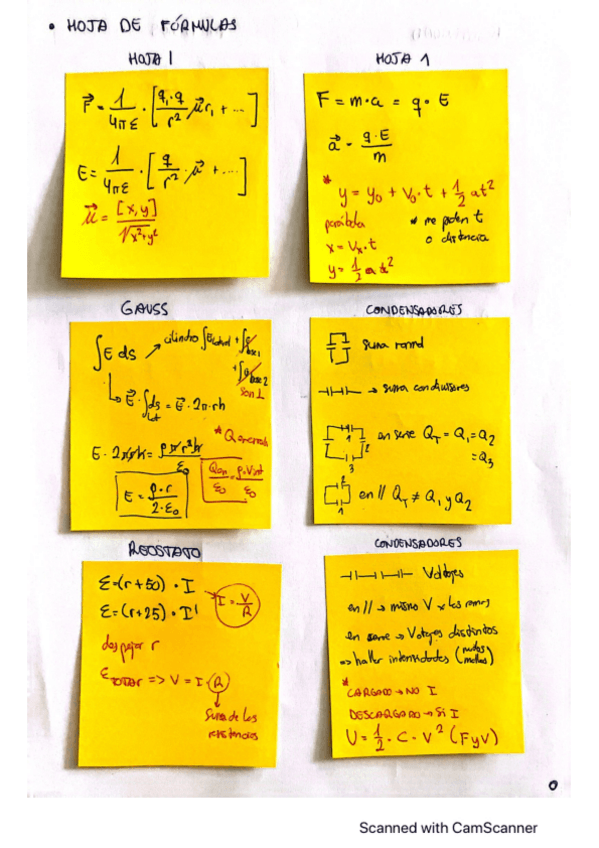 • HOJA DE FÓRMULAS
HOJA 1
F⃗ = 1/4πε · [q₁·q/r² · μ⃗r₁ + ...]
E = 1/4πε · [q/r² · μ⃗ + ...]
μ⃗ = [x,y]/√x²+y²
HOJA 1
F = m·a = q·E
a⃗ = q·E/m
* y = y₀ + v₀·t + 1/2 at²
parábola
* me piden t
o distancia
x = Vₓ·t
y = 1/2 at²
GAUSS
∫E ds → cilindro ∫E lateral + ∫base 1
+ ∫base 2
son ⊥
↳ E⃗·∫ds = E⃗·2π·rh
Lat
* Q encerrada
E·2πrh = ρπr²h/ε₀
Qen/ε₀ = ρ·Vint/ε₀
E = ρ·r/2·ε₀
CONDENSADORES
suma normal
→ suma conductores
1 2 3
en serie Q_T = Q₁ = Q₂
= Q₃
2 1
en // Q_T ≠ Q₁ y Q₂
REOSTATO
ε=(r+50)·I
ε=(r+25)·I'
I = V/R
despejar r
ε TOTAL => V = I·(R)
Suma de las
resistencias
CONDENSADORES
Voltajes
en // → mismo V x las ramas
en serie → Voltajes distintos
=> hallar intensidades (nudos
mallas)
*
CARGADO → NO I
DESCARGADO → SI I
U = 1/2 · C · V² (F y V)
0
Scanned with CamScanner